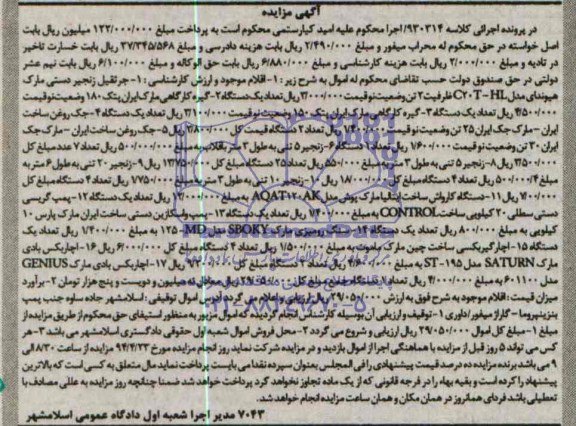 آگهی مزایده
در پرونده اجرائی کلاسه ۹۳۰۳۱۴/اجرا محکوم علیه امید کیارستمی محکوم است به پرداخت مبلغ ۱۲۳/۰۰۰/۰۰۰ میلیون ریال بابت
اصل خواسته در حق محکوم له محراب میفور و مبلغ ۲/۴۹۰/۰۰۰ ریال بابت هزینه دادرسی و مبلغ ۳۷/۳۴۵/۵۶۸ ریال بابت خسارت تاخیر
در تادیه و مبلغ ۲/۰۰۰/۰۰۰ ریال بابت هزینه کارشناسی و مبلغ ۶/۸۸۰/۰۰۰ ریال بابت حق الوکاله و مبلغ ۶/۱۰۰/۰۰۰ ریال بابت نیم عشر
دولتی در حق صندوق دولت حسب تقاضای محکوم له اموال به شرح زیر: ۱- اقلام موجود و ارزش کارشناسی: ۱- جرثقیل زنجیر دستی مارک
هیوندای مدل C۲۰T-HL ظرفیت ۲ تن وضعیت نو قیمت ۳/۰۰۰/۰۰۰ ریال تعداد یک دستگاه ۲- گیره کارگاهی مارک ایران پتک ۱۸۰ وضعیت نو قیمت
۴/۵۰۰/۰۰۰ ریال تعداد یک دستگاه ۳- گیره کارگاهی مارک ایران پتک ۱۵۰ وضعیت نو قیمت ۳/۱۰۰/۰۰۰ ریال تعداد یک دستگاه ۴- جک روغن ساخت
ایران - مارک جک ایران ۲۵ تن وضعیت نو قیمت ریال تعداد ۲ دستگاه قیمت کل ۲/۸۰۰/۰۰۰ ریال ۵- جک روغن ساخت ایران - مارک جک
ایران ۳۰ تن وضعیت نو قیمت ۱/۷۶۰/۰۰۰ ریال تعداد ۱ دستگاه ۶- زنجیر ۵ تنی به طول ۳ متر به مبلغ ۵۰۰/۰۰۰ ریال تعداد ۷ عدد مبلغ کل
۳/۵۰۰/۰۰۰ ریال ۸- زنجیر ۵ تنی به طول ۳ متر به مبلغ ۵۵۰/۰۰۰ ریال تعداد ۲۵ دستگاه مبلغ کل ۱۳/۷۵۰/۰۰۰ ریال ۹- زنجیر ۲۰ تنی به طول ۶ متر به
مبلغ ۴/۵۰۰/۰۰۰ ریال تعداد ۴ دستگاه مبلغ کل ۱۸/۰۰۰/۰۰۰ ریال ۱۰- زنجیر ۱۰ تنی به طول ۳ متر به مبلغ ۱/۷۵۰/۰۰۰ ریال تعداد ۴ دستگاه مبلغ کل
۷/۰۰۰/۰۰۰ ریال ۱۱- دستگاه کارواش ساخت ایتالیا مارک پوش مدل AQAT۱۲۰AK به مبلغ ریال تعداد یک دستگاه ۱۲- پمپ گریسی
دستی سطلی ۲۰ کیلویی ساخت CONTROL به مبلغ ۱/۴۰۰/۰۰۰ ریال تعداد یک دستگاه ۱۳- پمپ واسکازین دستی ساخت ایران مارک پارس ۱۰
کیلویی به مبلغ ۸۰۰/۰۰۰ ریال تعداد یک دستگاه ۱۴- رومیزی مارک SBOKY مدل MD - ۱۲۵ به مبلغ ۱/۴۰۰/۰۰۰ ریال تعداد یک
دستگاه ۱۵- اچار گیربکسی ساخت چین مارک به مبلغ ۱/۵۰۰/۰۰۰ ریال تعداد ۴ دستگاه مبلغ کل ۶/۰۰۰/۰۰۰ ریال ۱۶- اچار بکس بادی
SATURN مدل ST-۱۹۵ به مبلغ ریال تعداد ۲ دستگاه مبلغ کل ریال ۱۷- اچار بکس بادی مارک GENIUS
مدل ۶۰۱۱۰۰ به مبلغ ۴/۰۰۰/۰۰۰ ریال تعداد دستگاه جمع مبلغ کل ریال معادل نه میلیون و دویست و پنج هزار تومان ۲- برآورد
میزان قیمت: اقلام موجود به شرح فوق به ارزش ۲۹/۰۵۰/۰۰۰ ریال ارزیابی و اعلام می گردد آدرس اموال توقیفی: اسلامشهر جاده ساوه جنب پمپ
بنزین نیروما - گاراژ میفور/داوری ۱- توقیف و ارزیابی آن بوسیله کارشناس انجام گردیده که اموال مزبور به منظور استیفای حق محکوم از طریق مزایده از
مبلغ ۱- مبلغ کل اموال ۲۹/۰۵۰/۰۰۰ ریال ارزیابی و شروع می گردد ۲- محل فروش اموال شعبه اول حقوقی دادگستری اسلامشهر می باشد ۳- هر
کس می تواند ۵ روز قبل از مزایده با هماهنگی اجرا از اموال بازدید و در مزایده شرکت نماید روز انجام مزایده مورخ ۹۴/۴/۲۳ مزایده از ساعت ۸/۳۰ الی
۹ می باشد برنده مزایده ده درصد قیمت پیشنهادی را فی المجلس بعنوان سپرده نقدا می بایست پرداخت نماید مال متعلق به کسی است که بالاترین
پیشنهاد را کرده است و بقیه بهاء را در فرجه قانونی که از یک ماده تجاوز نخواهد کرد پرداخت خواهد شد ضمنا چنانچه روز مزایده به عللی مصادف با
تعطیلی باشد فردای همانروز در همان مکان و همان ساعت مزایده انجام خواهد شد.
۷۰۴۳ مدیر اجرا شعبه اول دادگاه عمومی اسلامشهر